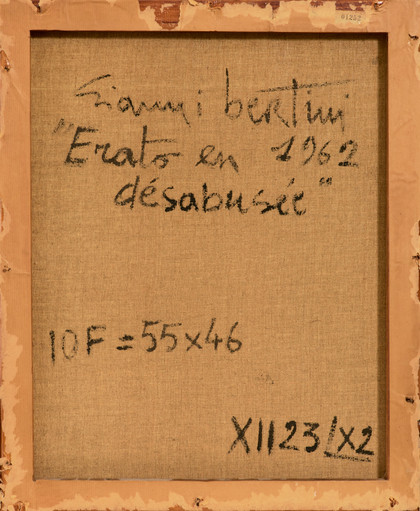 Gianni bertini
"Erato en 1962
désabusée"
10F = 55x46
XII23/x2